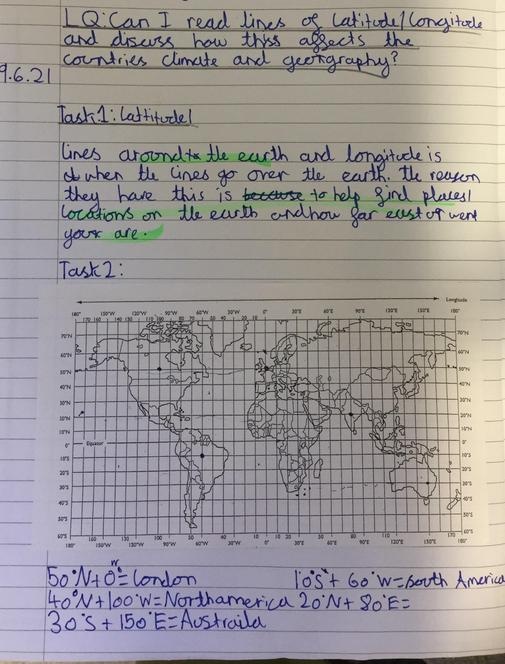 LQ: Can I read lines of latitude/longitude
and discuss how thiss affects the
countries climate and georgraphy?
9.6.21
Task 1: Lattitude/
lines around the earth and longitude is
when the lines go over the earth. the reason
they have this is because to help find places/
locations on the earth and how far east or went
your are.
Task 2:
Longitude
180° 150°W 120°W 90°W 60°W 30°W 0° 30°E 60°E 90°E 120°E 150°E 180°
70°N 70°N
60°N 60°N
50°N 50°N
40°N 40°N
30°N 30°N
20°N 20°N
10°N 10°N
0° Equator 0°
10°S 10°S
20°S 20°S
30°S 30°S
40°S 40°S
50°S 50°S
60°S 60°S
180° 150°W 120°W 90°W 60°W 30°W 0° 30°E 60°E 90°E 120°E 150°E 180°
50°N + 0°W = London 10°S + 60°W = South America
40°N + 100°W = Northamerica 20°N + 80°E =
30°S + 150°E = Austraila